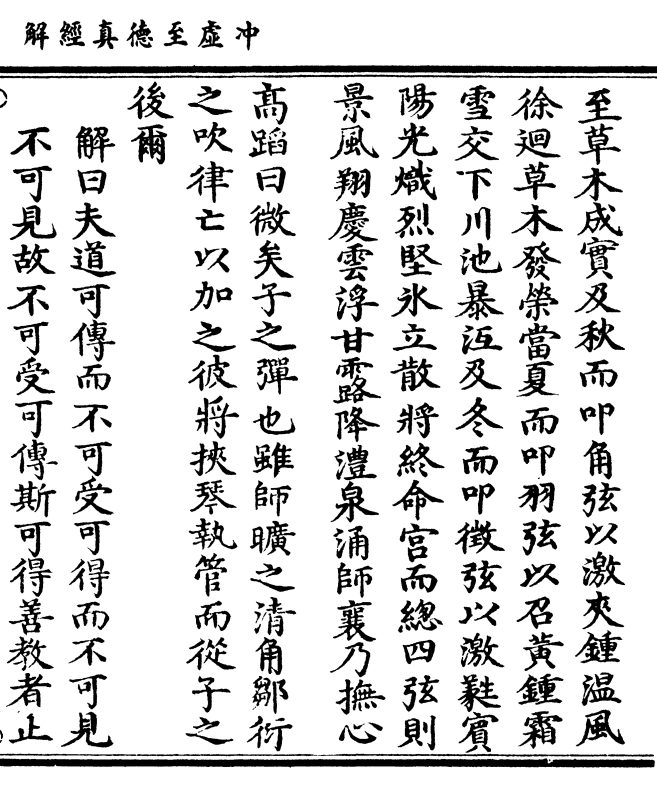 冲虛至德真經解
至草木成實及秋而叩角弦以激夾鍾温風
徐迴草木發榮當夏而叩羽弦以召黃鍾霜
雪交下川池暴沍及冬而叩徵弦以激蕤賓
陽光熾烈堅氷立散將終命宫而總四弦則
景風翔慶雲浮甘露降澧泉涌師襄乃撫心
高蹈曰微矣子之彈也雖師曠之清角鄒衍
之吹律亡以加之彼將挾琴執管而從子之
後爾
解曰夫道可傳而不可受可得而不可見
不可見故不可受可傳斯可得善教者止